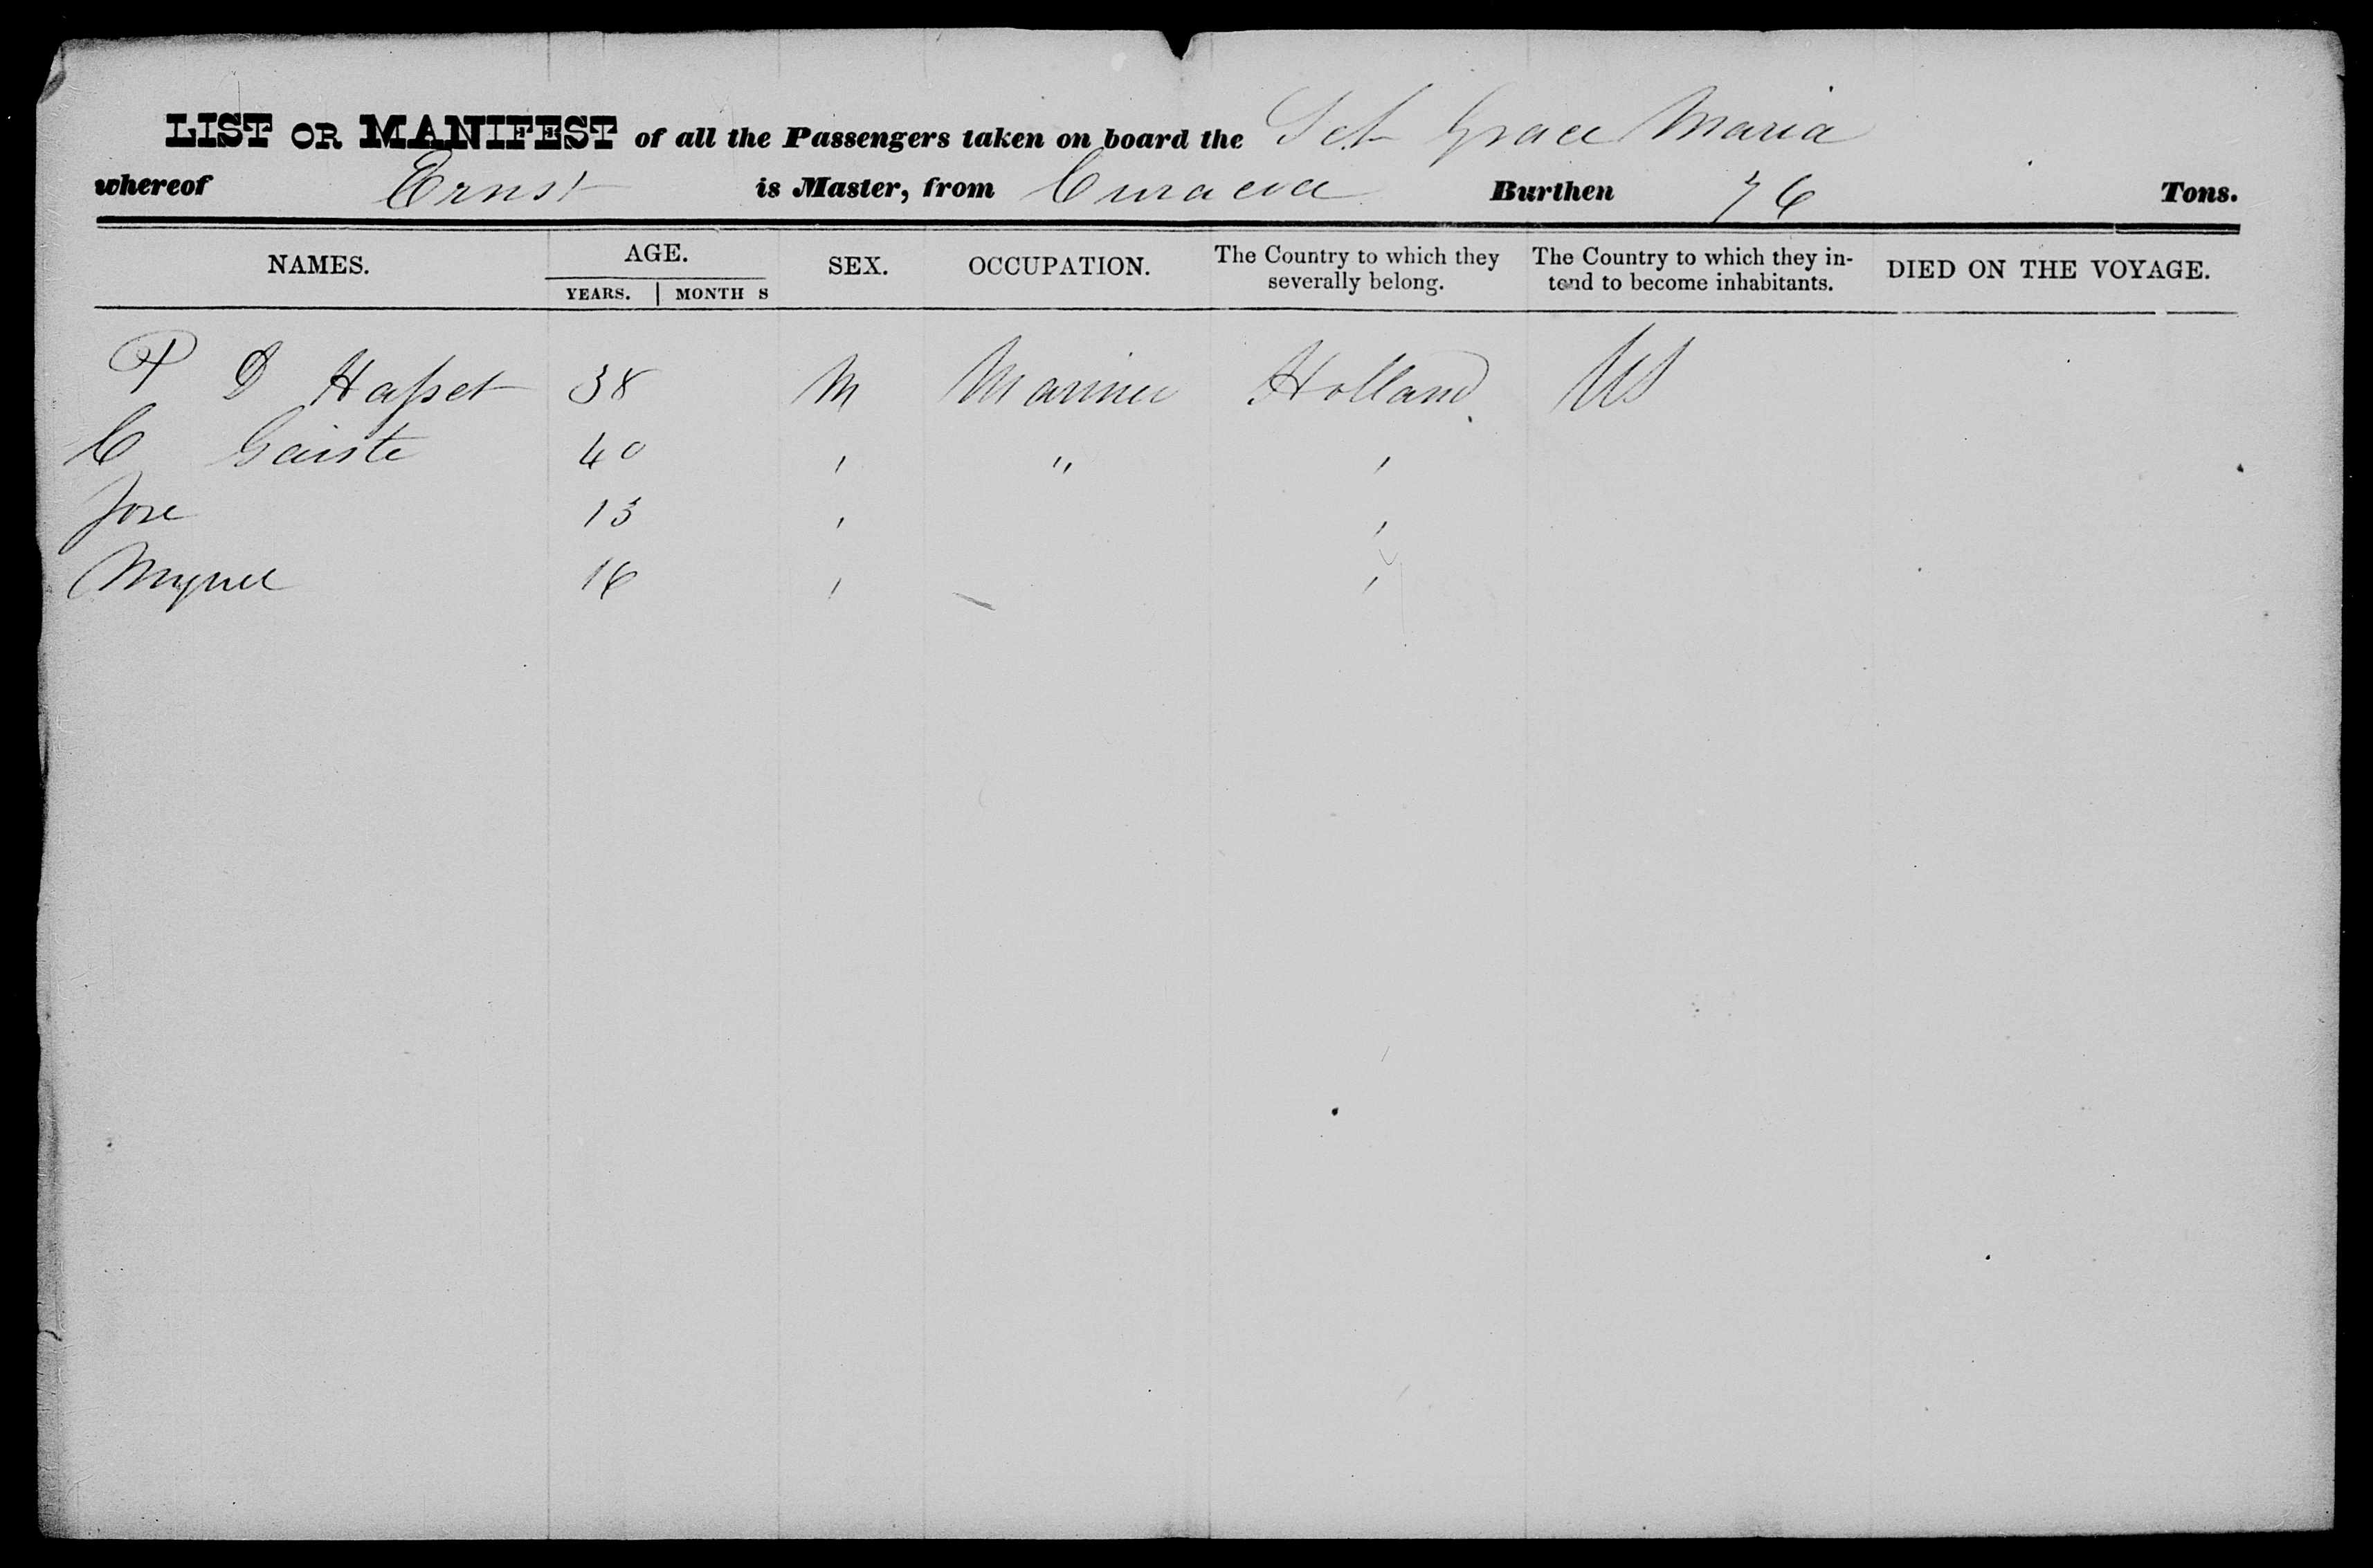 LIST OR MANIFEST of all the Passengers taken on board the Sch Grace Maria
whereof Ernst is Master, from Curacoa Burthen 76 Tons.
NAMES. AGE. SEX. OCCUPATION. The Country to which they severally belong. The Country to which they intend to become inhabitants. DIED ON THE VOYAGE.
YEARS. | MONTHS
D Hasset 38 M Mariner Holland US
C 40 " " "
Jose 13 " "
Miguel 16 " "